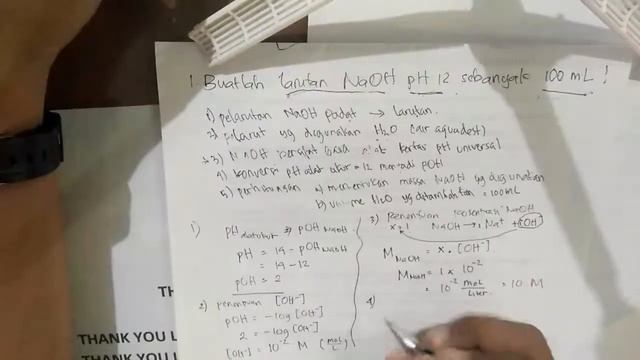 1. Buatlah larutan NaOH pH 12 sebanyak 100 mL !
1) pelarutan NaOH padat → larutan.
2) pelarut yg digunakan H2O (air aquadest)
3) NaOH bersifat basa kertas pH universal
4) konversi pH = 12 menjadi pOH
5) perhitungan a) menentukan massa NaOH yg digunakan
b) volume H2O yg ditambahkan = 100mL
1) pH → pOH NaOH
pH = 14 - pOH NaOH
= 14 - 12
pOH = 2
2) penentuan [OH-]
pOH = -log [OH-]
2 = -log [OH-]
[OH-] = 10-2 M (mol/L)
3) Penentuan konsentrasi NaOH
x = 1 NaOH → Na+ + OH-
M NaOH = x . [OH-]
M NaOH = 1 x 10-2
= 10-2 mol/Liter = 10 M
4)
THANK YOU
THANK YOU L
THANK YOU L